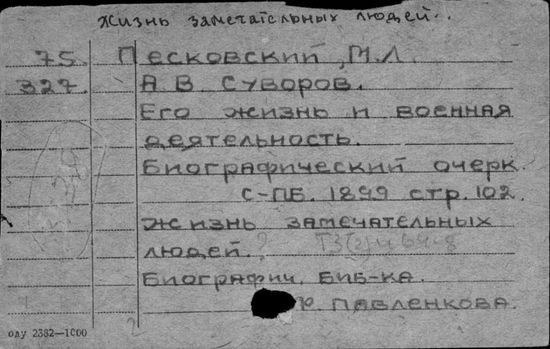 Жизнь замечательных людей..
75. Песковский, М.Л.
327. А.В Суворов.
Его жизнь и военная
деятельность.
Биографический очерк.
С-ПБ. 1899 стр. 102.
жизнь замечательных
людей.
Биографич. Биб-ка.
Ф. Павленкова.
оду 2382—1С00